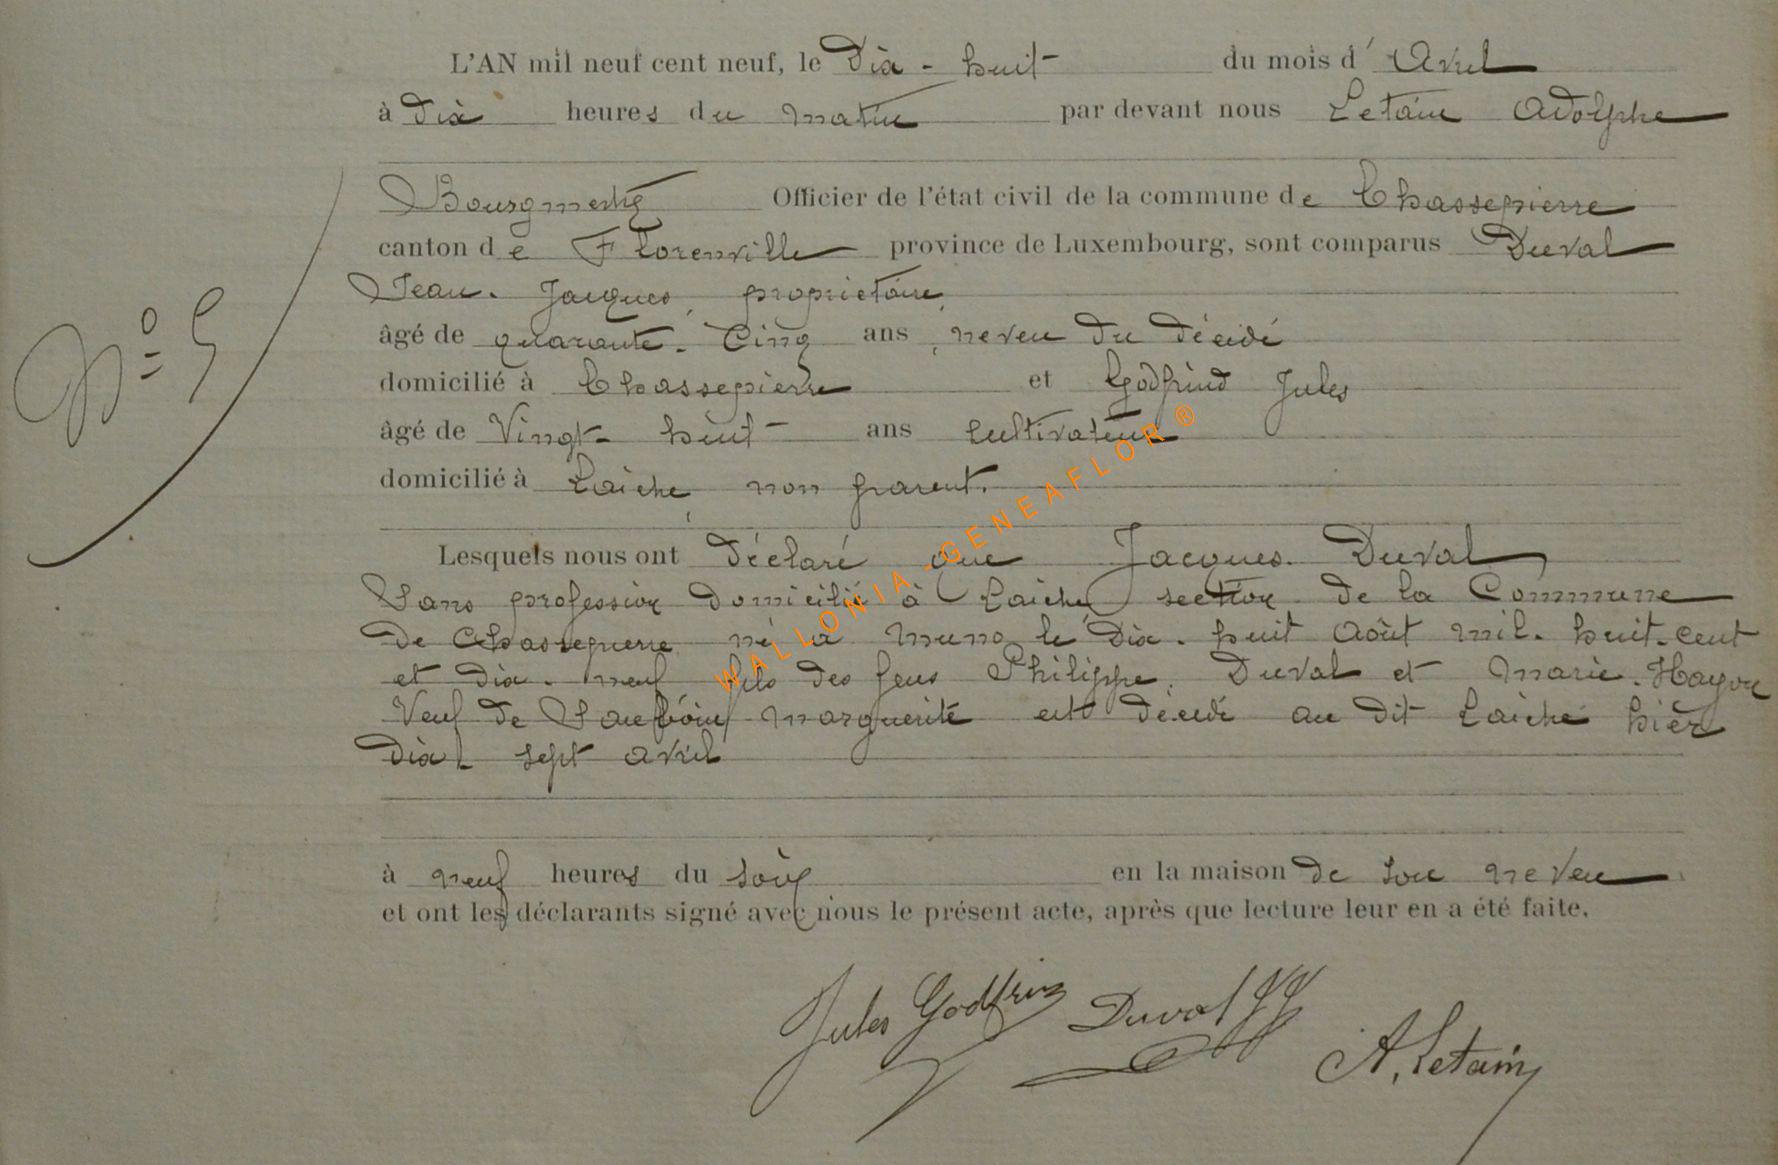 L'AN mil neuf cent neuf, le Dix - huit du mois d' Avril
à dix heures du matin par devant nous Letain Adolphe
Bourgmestre Officier de l'état civil de la commune de Chassepierre
canton de Florenville province de Luxembourg, sont comparus Duval
Jean. Jacques, propriétaire,
N° 5
âgé de quarante. Cinq ans, neveu du décédé
domicilié à Chassepierre et Godfrind Jules
âgé de Vingt- huit ans cultivateur
domicilié à Laiche, non parent.
Lesquels nous ont déclaré que Jacques. Duval
Sans profession domicilié à Laiche section de la Commune
de Chassepierre né à Muno le Dix. huit Août mil. huit. cent
et dix. neuf fils des feus Philippe. Duval et Marie. Hayon
Veuf de Marguerite est décédé au dit Laiche hier
Dix sept avril
à neuf heures du soir en la maison de son neveu
et ont les déclarants signé avec nous le présent acte, après que lecture leur en a été faite.
Jules Godfrin Duval JJ
A. Letain
WALLONIA-GENEAFLOR®